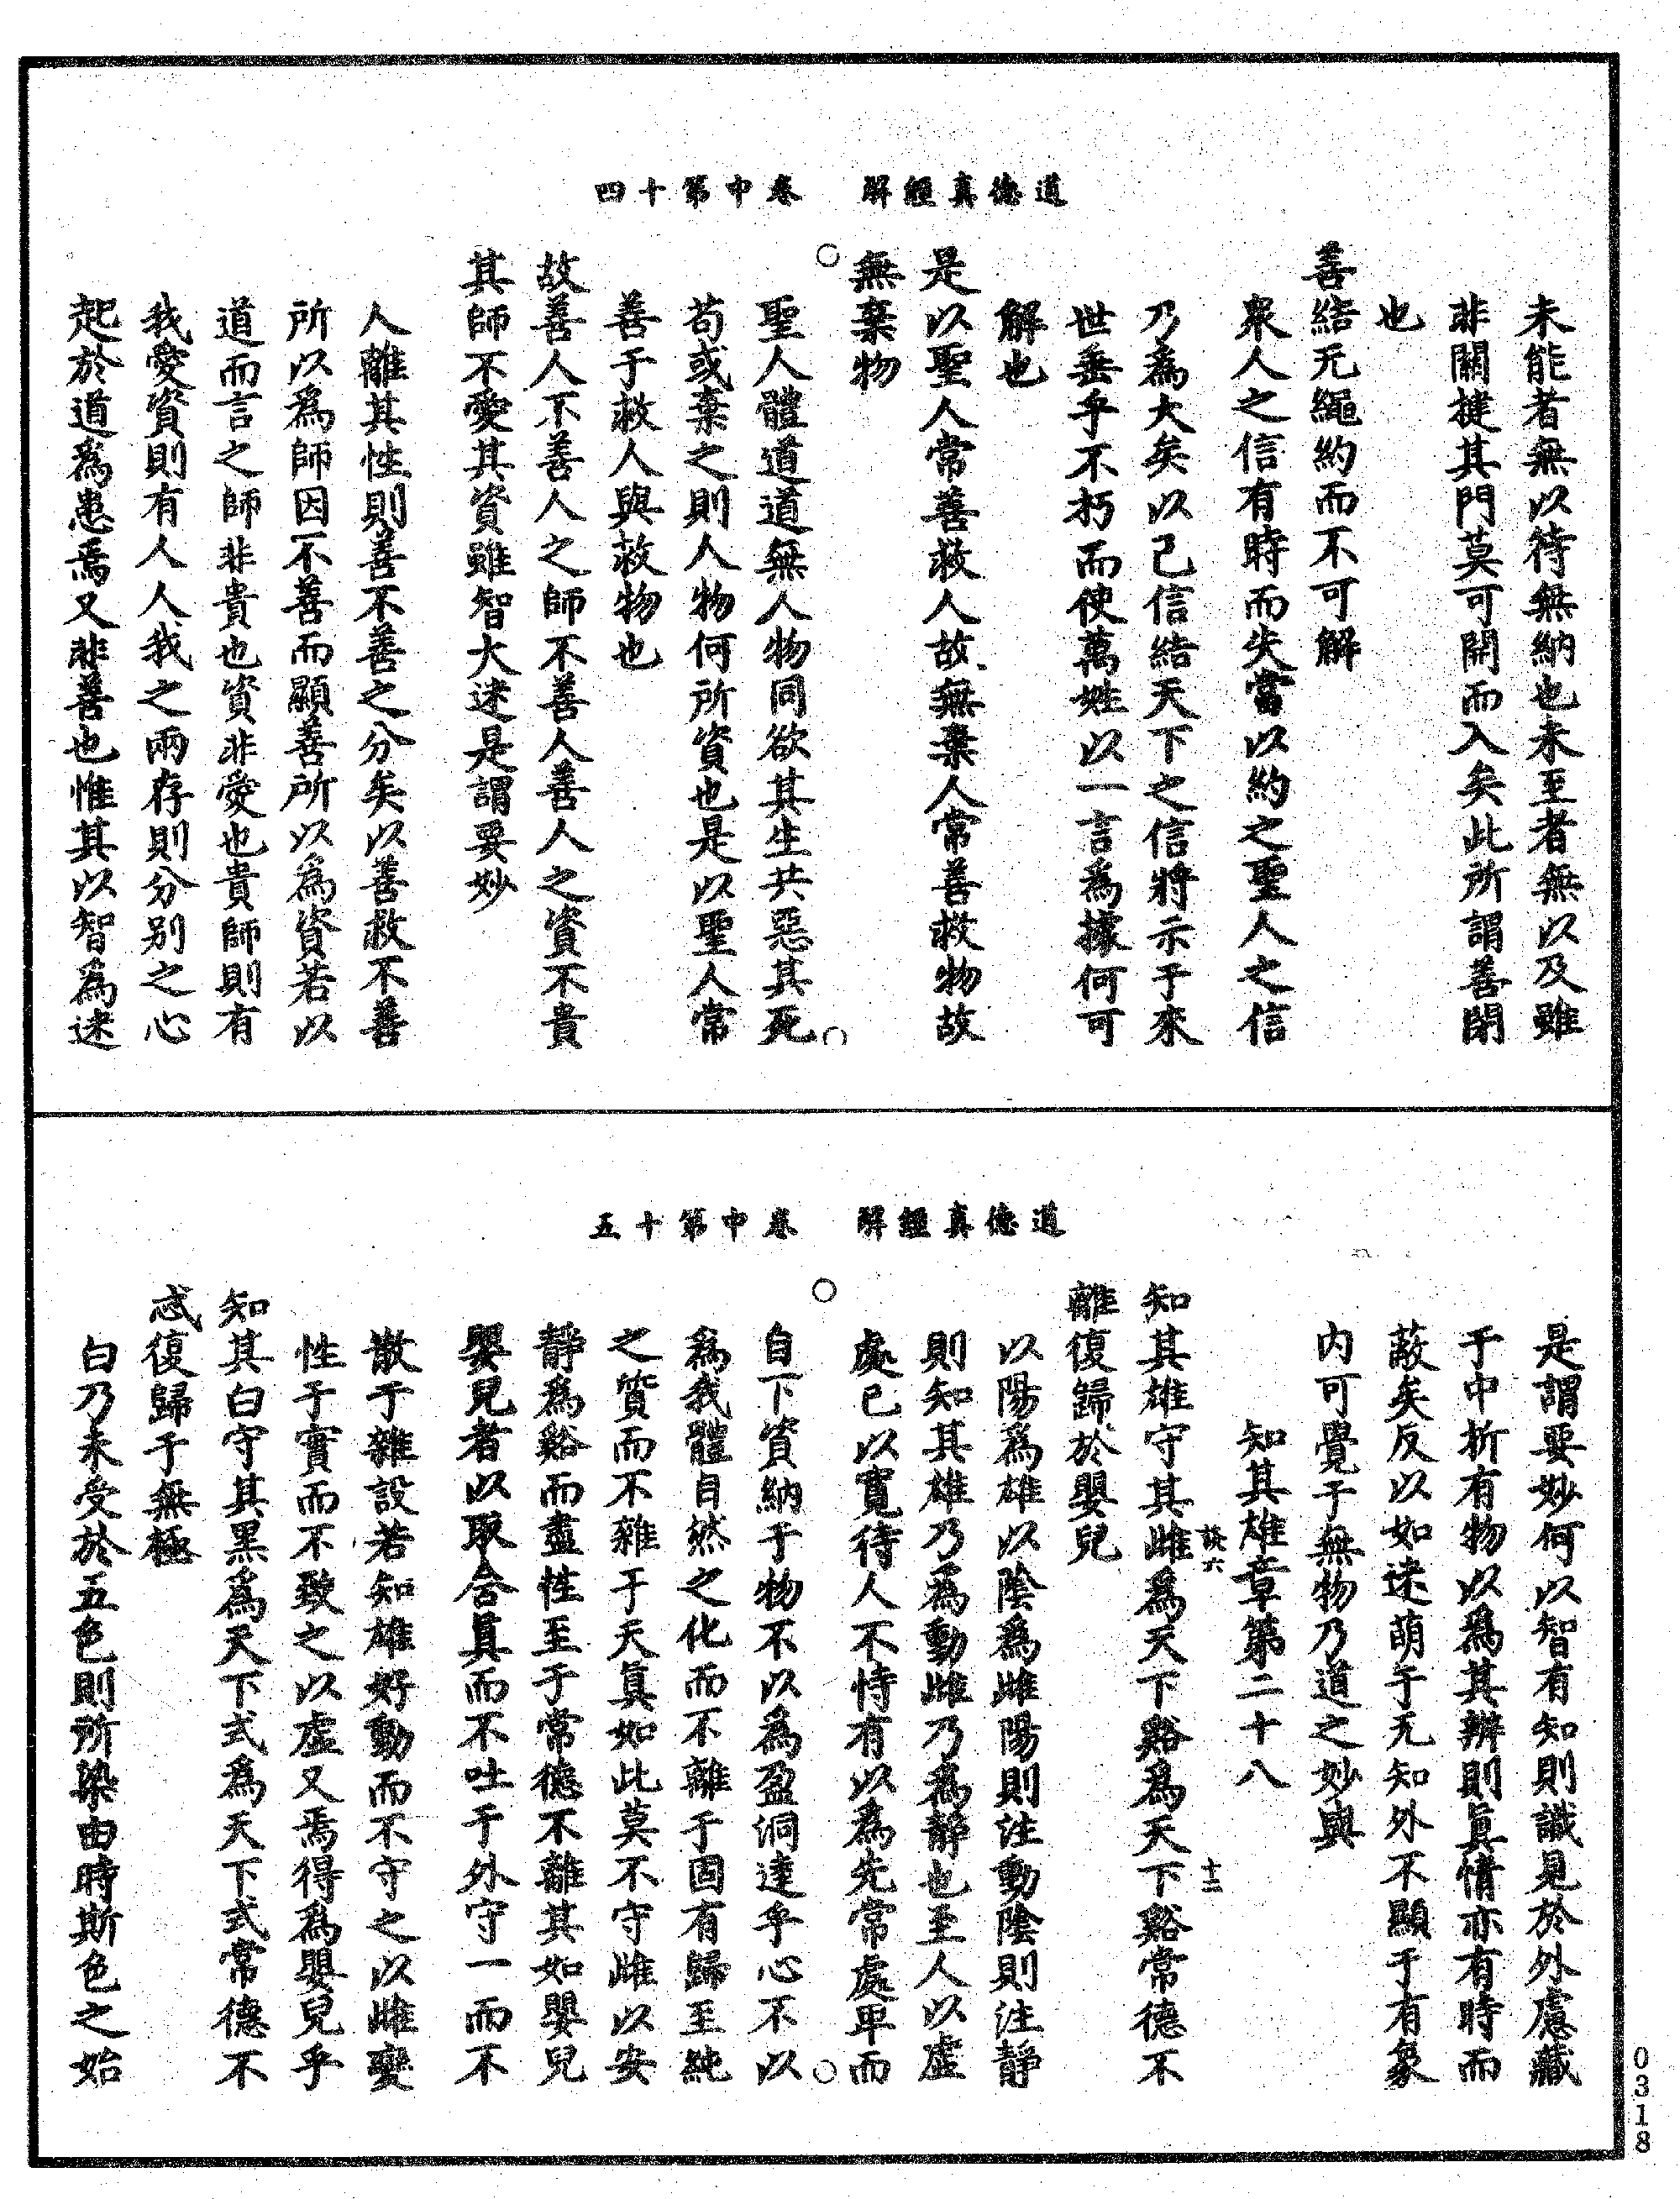 道德真經解　卷中第十四
未能者無以待無納也未至者無以及雖
非關揵其門莫可開而入矣此所謂善閉
也
善結无繩約而不可解
衆人之信有時而失當以約之聖人之信
乃為大矣以己信結天下之信將示于來
世垂乎不朽而使萬姓以一言為據何可
解也
是以聖人常善救人故無棄人常善救物故
無棄物
聖人體道道無人物同欲其生共惡其死
苟或棄之則人物何所資也是以聖人常
善于救人與救物也
故善人不善人之師不善人善人之資不貴
其師不愛其資雖智大迷是謂要妙
人離其性則善不善之分矣以善救不善
所以為師因不善而顯善所以為資若以
道而言之師非貴也資非愛也貴師則有
我愛資則有人人我之兩存則分別之心
起於道為患焉又非善也惟其以智為迷
道德真經解　卷中第十五
是謂要妙何以智有知則識見於外慮藏
于中折有物以為其辨則真情亦有時而
蔽矣反以如迷萌于无知外不顯于有象
内可覺于無物乃道之妙與
知其雄章第二十八
談六
十二
知其雄守其雌為天下谿為天下谿常德不
離復歸於嬰兒
以陽為雄以陰為雌陽則注動陰則注靜
則知其雄乃為動雌乃為靜也至人以虛
處己以寬待人不恃有以為先常處卑而
自下資納于物不以為盈洞達乎心不以
為我體自然之化而不離于固有歸至純
之質而不雜于天真如此莫不守雌以安
靜為谿而盡性至于常德不離其如嬰兒
嬰兒者以取含真而不吐于外守一而不
散于雜設若知雄好動而不守之以雌變
性于實而不致之以虛又焉得為嬰兒乎
知其白守其黑為天下式為天下式常德不
忒復歸于無極
白乃未受於五色則所染由時斯色之始
0318